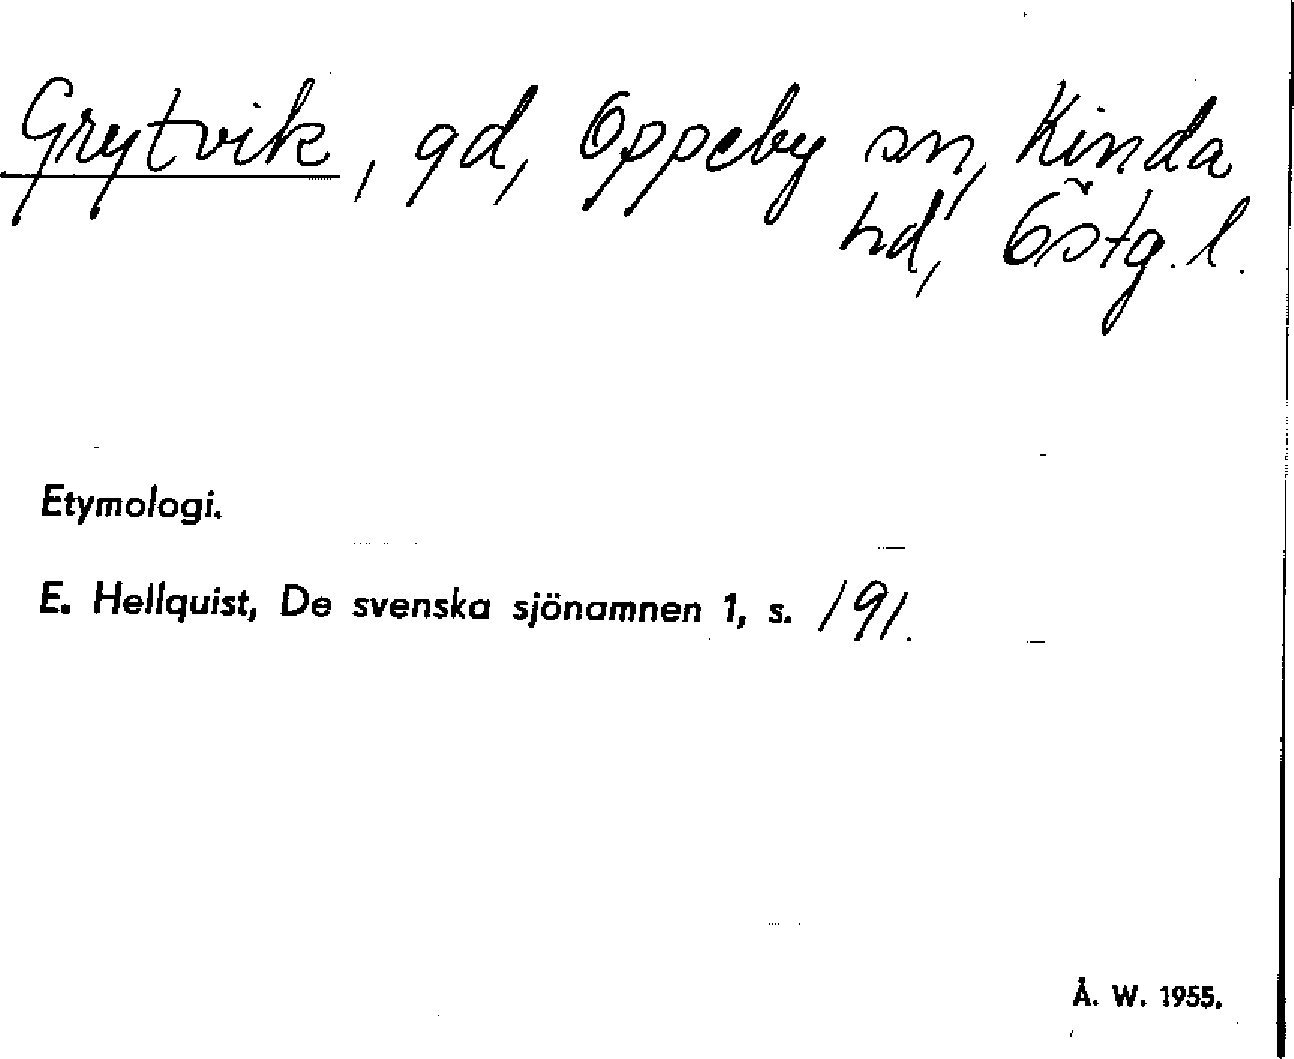 Grytvik, gd, Oppeby sn, Kinda
hd, Östg. l.
Etymologi.
E. Hellquist, De svenska sjönamnen 1, s. 191.
Å. W. 1955.